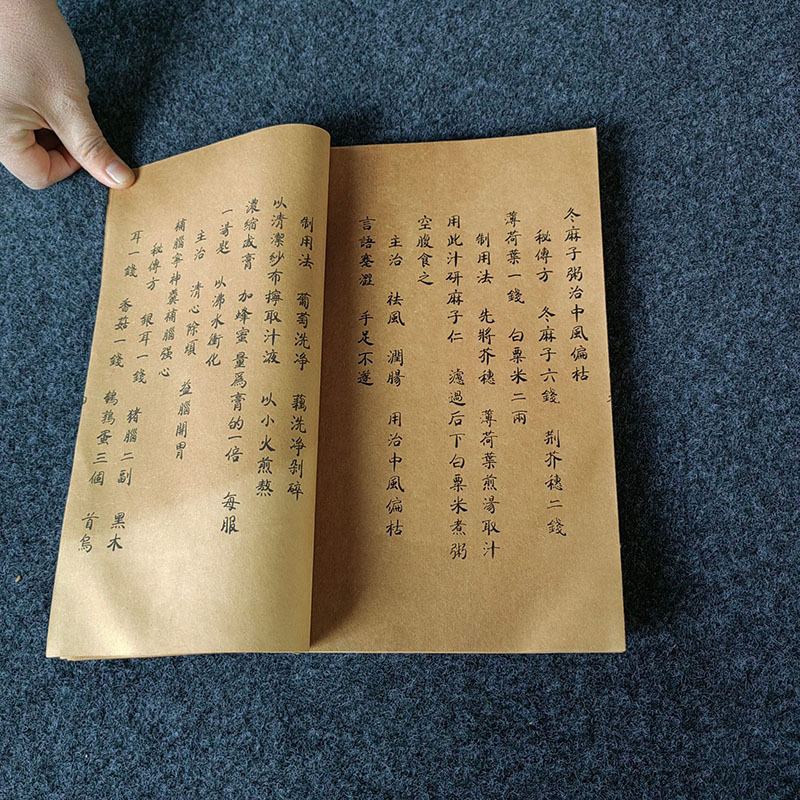 冬麻子粥治中風偏枯
秘傳方 冬麻子六錢 荆芥穗二錢
薄荷葉一錢 白粟米二兩
制用法 先將芥穗 薄荷葉煎湯取汁
用此汁研麻子仁 濾過后下白粟米煮粥
空腹食之
主治 祛風 潤腸 用治中風偏枯
言語蹇澀 手足不遂
制用法 葡萄洗净 藕洗净剁碎
以清潔紗布擰取汁液 以小火煎熬
濃缩成膏 加蜂蜜量爲膏的一倍 每服
一湯匙 以沸水衝化
主治 清心除煩 益腦開胃
補腦寧神羹補腦强心
秘傳方 銀耳一錢 猪腦二副 黑木
耳一錢 香菇一錢 鵪鶉蛋三個 首烏